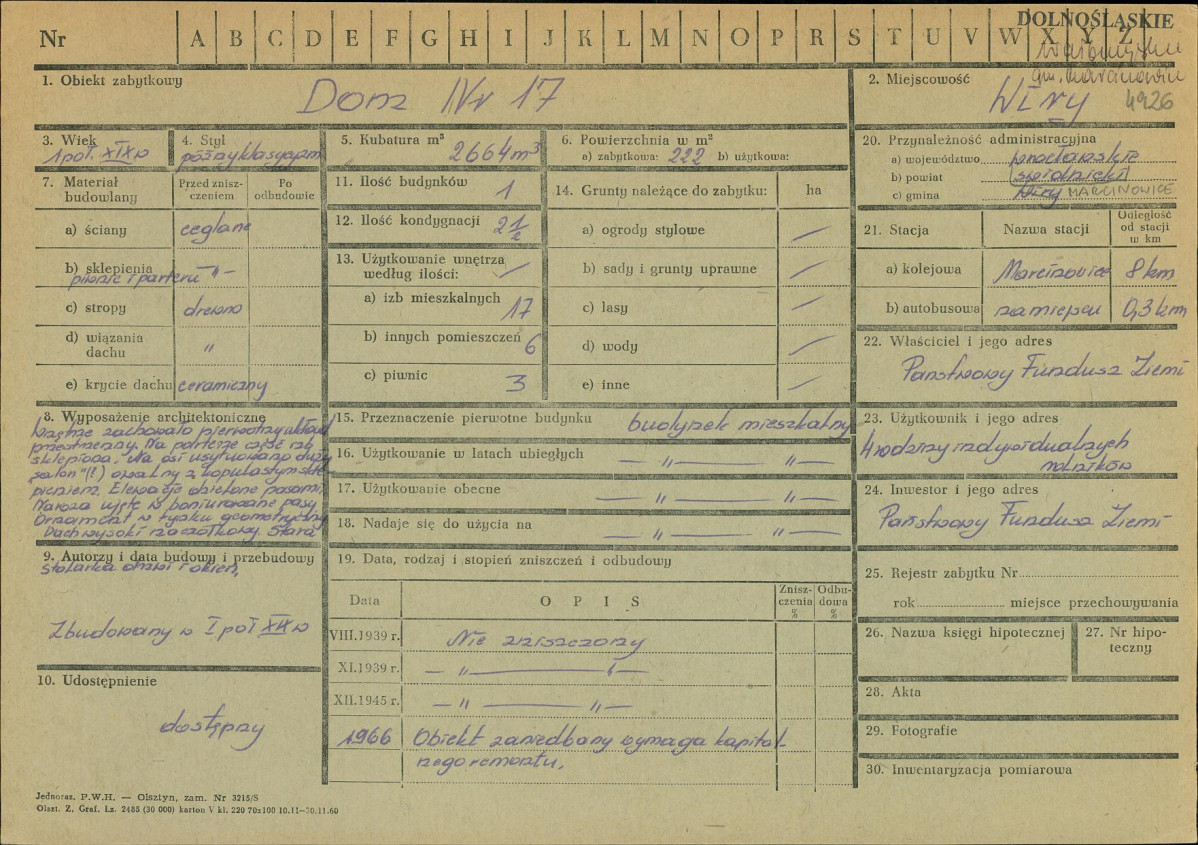 Nr A B C D E F G H I J K L M N O P R S T U V W X Y Z
DOLNOŚLĄSKIE
gm. Marcinowice
4926
1. Obiekt zabytkowy
Dom Nr 17
2. Miejscowość
Wiry
3. Wiek
1 poł. XIX w
4. Styl
późnyklasycyzm
5. Kubatura m³
2664 m³
6. Powierzchnia w m²
a) zabytkowa: 222 b) użytkowa:
7. Materiał budowlany
Przed zniszczeniem
Po odbudowie
a) ściany ceglane
b) sklepienia piwnic i parteru — " —
c) stropy drewno
d) wiązania dachu "
e) krycie dachu ceramiczny
11. Ilość budynków 1
12. Ilość kondygnacji 2 1/2
13. Użytkowanie wnętrza według ilości: —
a) izb mieszkalnych 17
b) innych pomieszczeń 6
c) piwnic 3
14. Grunty należące do zabytku: ha
a) ogrody stylowe —
b) sady i grunty uprawne —
c) lasy —
d) wody —
e) inne —
20. Przynależność administracyjna
a) województwo wrocławskie
b) powiat świdnicki
c) gmina Wiry MARCINOWICE
21. Stacja
Nazwa stacji
Odległość od stacji w km
a) kolejowa Marcinowice 8 km
b) autobusowa na miejscu 0,3 km
22. Właściciel i jego adres
Państwowy Fundusz Ziemi
8. Wyposażenie architektoniczne
Wnętrze zachowało pierwotny układ
przestrzenny. Na parterze część izb
sklepiona. Na osi usytuowano duży
salon "(!) owalny z kopulastym skle
pieniem. Elewacje obielone pasami.
Naroża ujęte w boniurowane pasy
Ornament w tynku geometryczny
Dach wysoki naczółkowy. Stara
stolarka drzwi i okien,
9. Autorzy i data budowy i przebudowy
Zbudowany w I poł XIX w
10. Udostępnienie
dostępny
15. Przeznaczenie pierwotne budynku budynek mieszkalny
16. Użytkowanie w latach ubiegłych — " — " —
17. Użytkowanie obecne — " — " —
18. Nadaje się do użycia na — " — " —
19. Data, rodzaj i stopień zniszczeń i odbudowy
Data
OPIS
Zniszczenia %
Odbudowa %
VIII.1939 r. Nie zniszczony
XI.1939 r. — " — " —
XII.1945 r. — " — " —
1966 Obiekt zaniedbany wymaga kapital
nego remontu.
23. Użytkownik i jego adres
4 rodziny indywidualnych
rolników
24. Inwestor i jego adres
Państwowy Fundusz Ziemi
25. Rejestr zabytku Nr
rok miejsce przechowywania
26. Nazwa księgi hipotecznej
27. Nr hipoteczny
28. Akta
29. Fotografie
30. Inwentaryzacja pomiarowa
Jednoraz. P.W.H. — Olsztyn, zam. Nr 3215/S
Olszt. Z. Graf. Lz. 2485 (30 000) karton V kl. 220 70x100 10.11—30.11.60